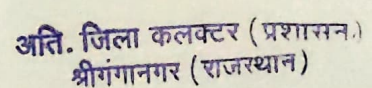 अति. जिला कलक्टर (प्रशासन.)
श्रीगंगानगर (राजस्थान)